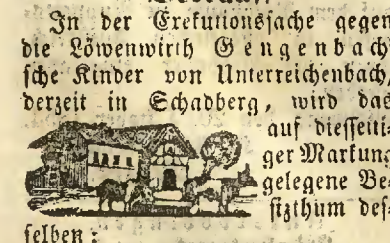 In der Exekutionssache gegen
die Löwenwirth Gengenbach'
sche Kinder von Unterreichenbach,
derzeit in Schadberg, wird das
auf diesseiti-
ger Markung
gelegene Be-
sizthum des-
selben: